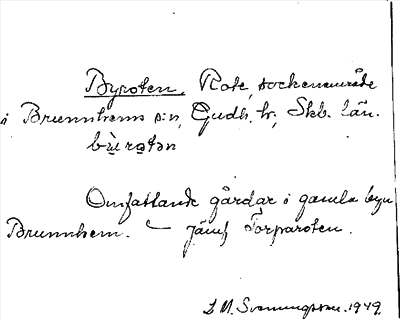 Byroten, Rote, sockenområde
i Brunnhems s:n, Gudh. hr, Skb. län.
bỳ̤rotən
Omfattande gårdar i gamla byn
Brunnhem. – Jämf Torparoten.
D M. Svenungsson. 1949